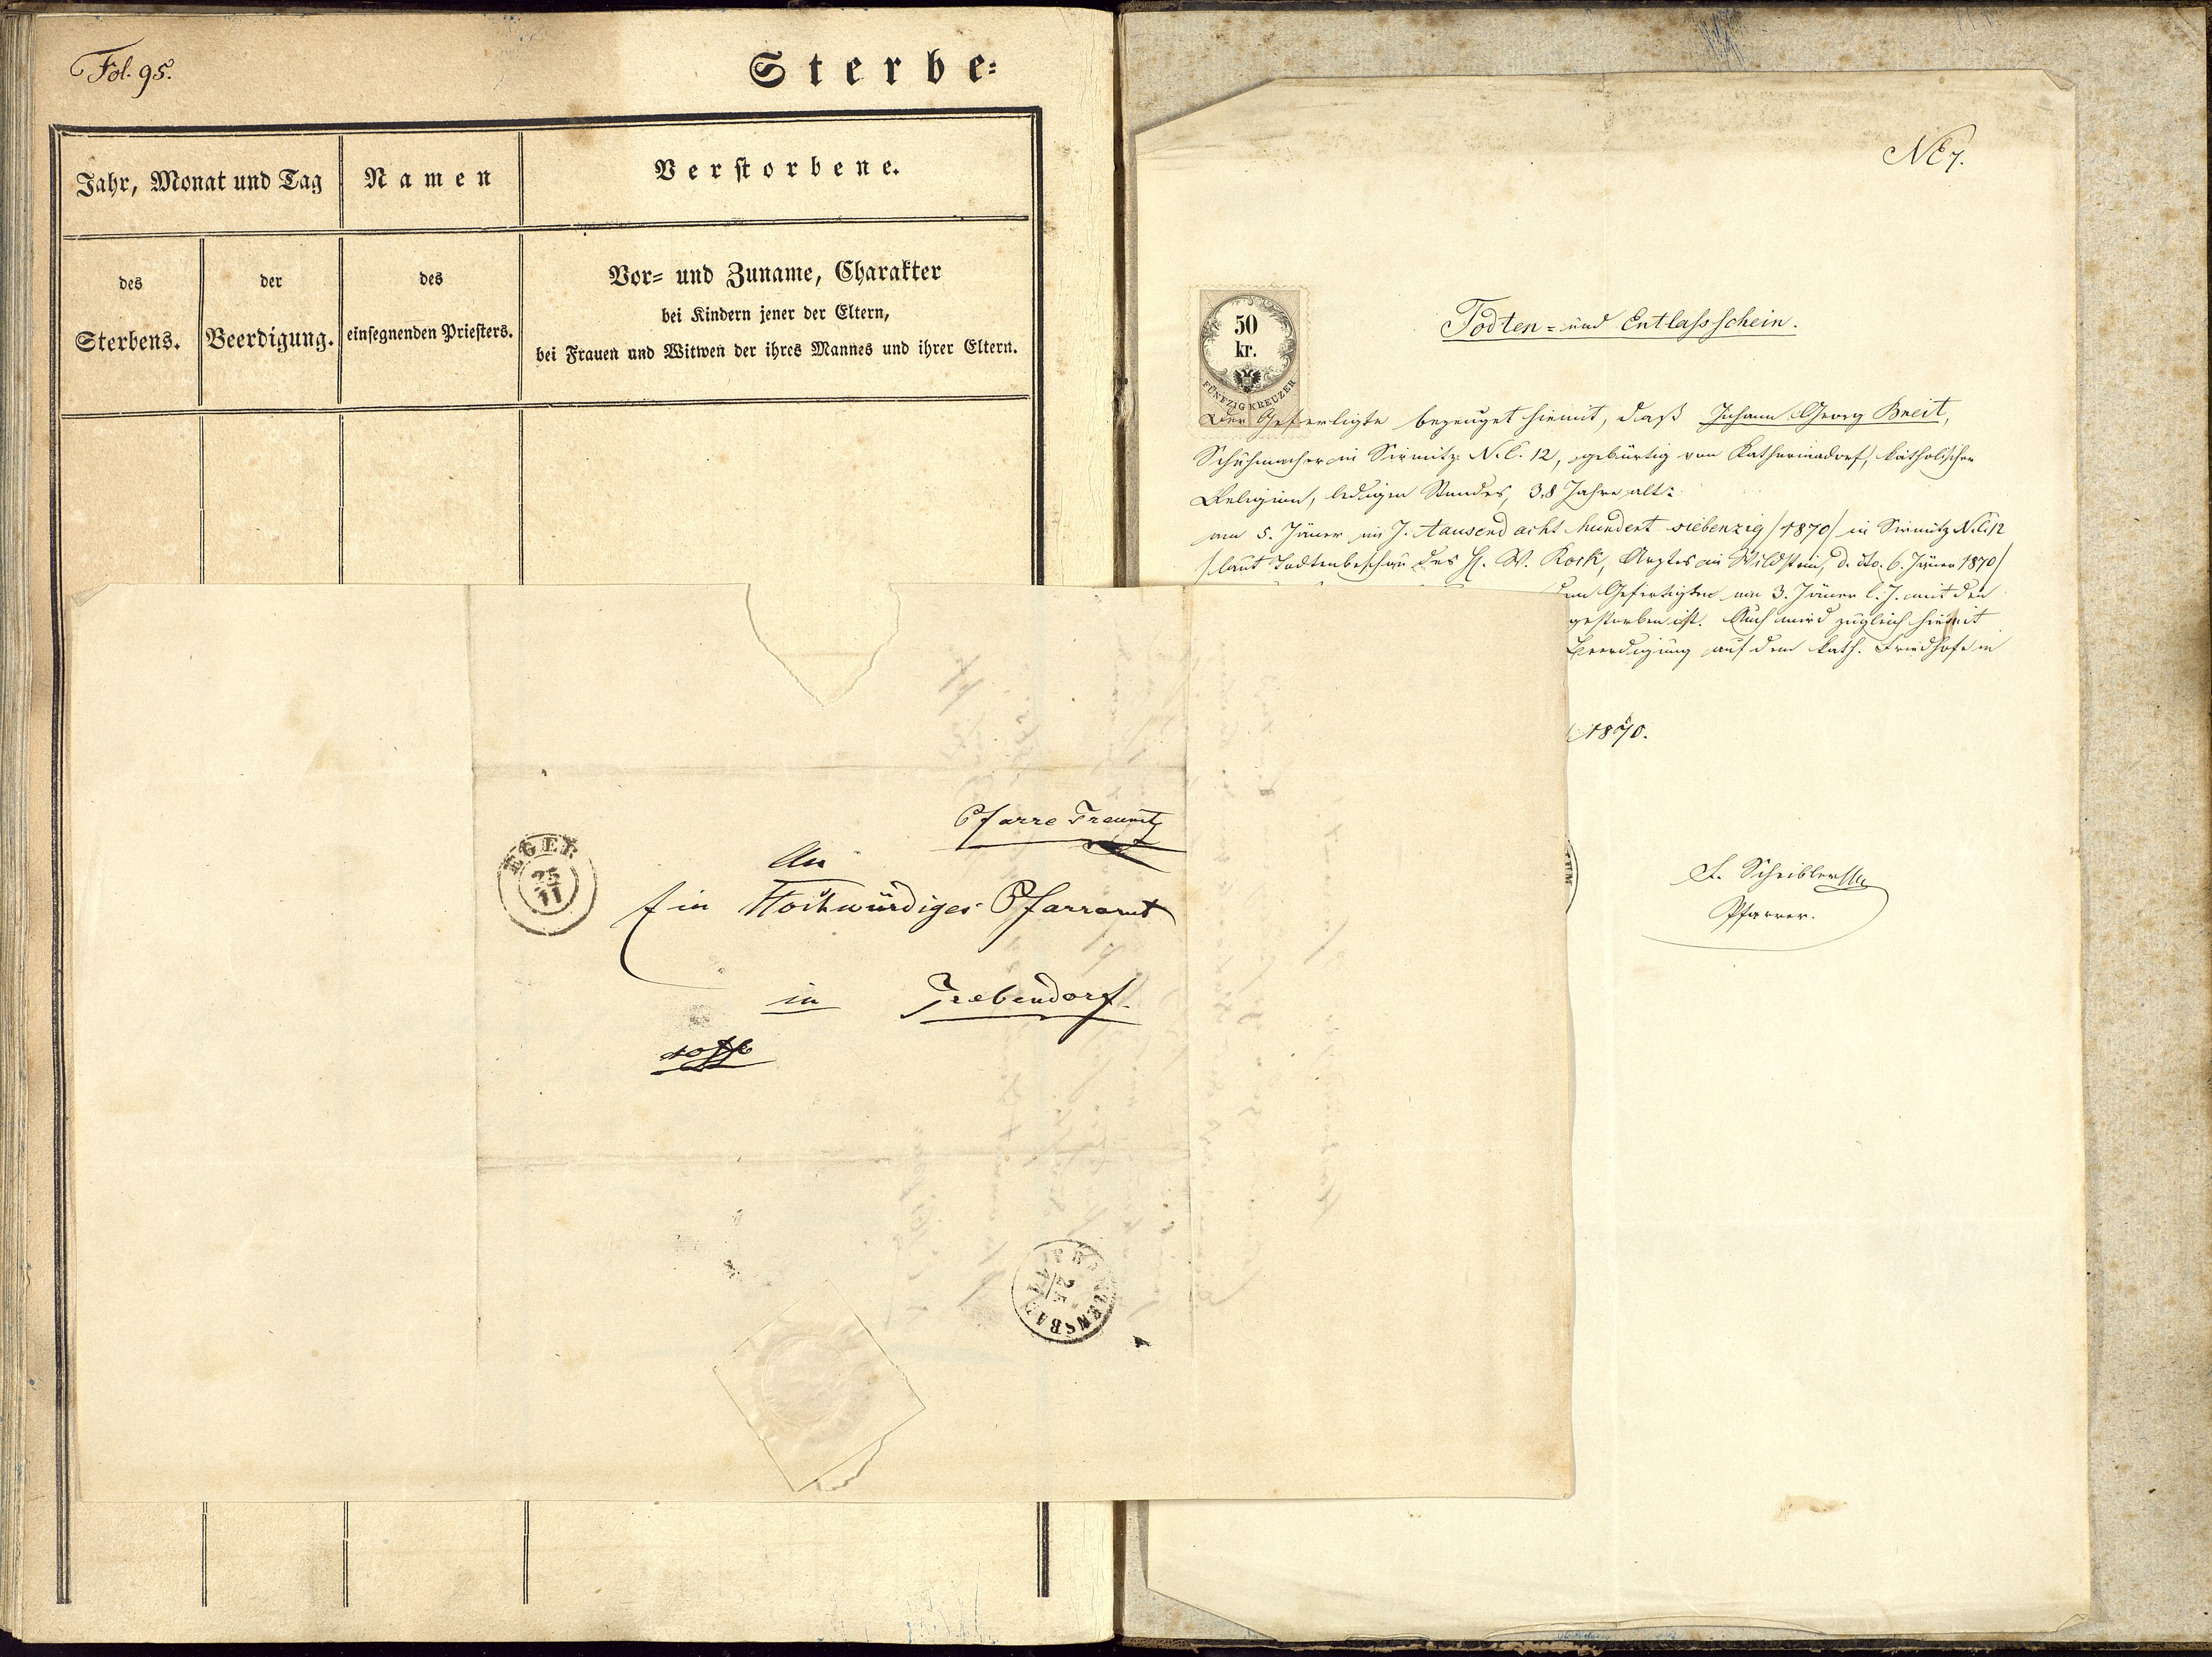 Fol. 95.
Sterbe=
Jahr, Monat und Tag
Namen
Verstorbene.
des
Sterbens.
der
Beerdigung.
des
einsegnenden Priesters.
Vor= und Zuname, Charakter
bei Kindern jener der Eltern,
bei Frauen und Witwen der ihres Mannes und ihrer Eltern.
Pfarre
An
Ein Hochwürdiges Pfarramt
in Trebendorf.
EGER
25
11
NE 7.
50
kr.
FÜNFZIG KREUZER
Todten= und Entlassschein.
Der Gefertigte bezeuget hiemit, daß Johann Georg Breit,
Schuhmacher in Sirmitz N.C. 12, gebürtig von Katharinadorf, katholischer
Religion, ledigen Standes, 38 Jahre alt:
am 5. Jäner im J. tausend acht hundert siebenzig /1870/ in Sirmitz N.C. 12
/laut Todtenbeschau des H. W. Rock, Arztes in Wildstein, d. dto. 6. Jäner 1870/
Gefertigten am 3. Jäner l. J. mit den
gestorben ist. Auch wird zugleich hiemit
Beerdigung auf dem kath. Friedhofe in
1870.
Scheibler
Pfarrer.